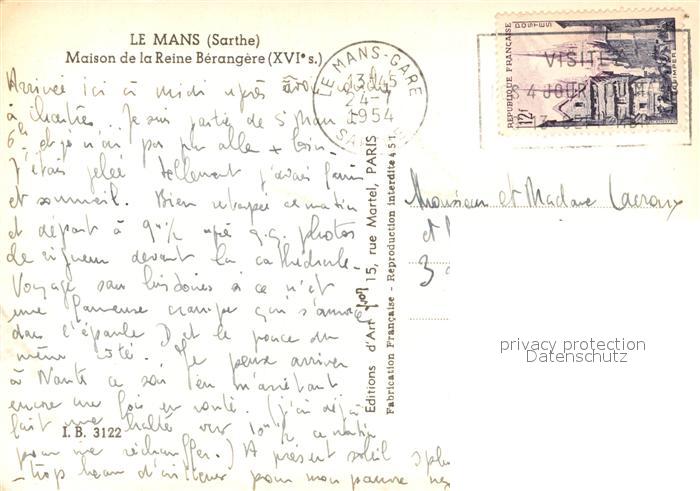 LE MANS (Sarthe)
Maison de la Reine Bérangère (XVIe s.)
LE MANS-GARE
13H45
24-7
1954
SARTHE
REPUBLIQUE FRANÇAISE
POSTES
QUIMPER
12f
VISITE
4 JOUR
Arrivée ici à midi après avoir
à Chartres. Je suis partie de St Mau
6h et je n'ai pas pu aller + loin.
J'étais gelée tellement j'avais faim
et sommeil. Bien retapée ce matin
et départ à 9h 1/2 après q.q. photos
de rigueur devant la cathédrale.
Voyage sans histoires si ce n'est
une fameuse crampe qui s'amuse
dans l'épaule D et le pouce du
même côté. Je peux arriver
à Nantes ce soir en m'arrêtant
encore une fois en route. (J'ai déjà
fait une halte vers 10h 1/2 ce matin
pour me réchauffer.) A présent soleil
trop beau d'ailleurs pour mon pauvre nez
I. B. 3122
Editions d'Art 15, rue Martel, PARIS
Fabrication Française - Reproduction interdite 451
Monsieur et Madame Lacroix
et
3
privacy protection
Datenschutz